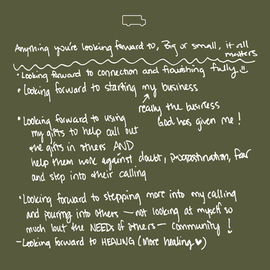 Anything you're looking forward to, Big or small, it all
matters
• Looking forward to connection and flourishing fully
• Looking forward to starting my business
really the business
God has given me!
• Looking forward to using
my gifts to help call out
the gifts in others AND
help them work against doubt, procrastination, fear
and step into their calling
• Looking forward to stepping more into my calling
and pouring into others — not looking at myself so
much but the NEEDS of others — community!
- Looking forward to HEALING (More healing ♥)